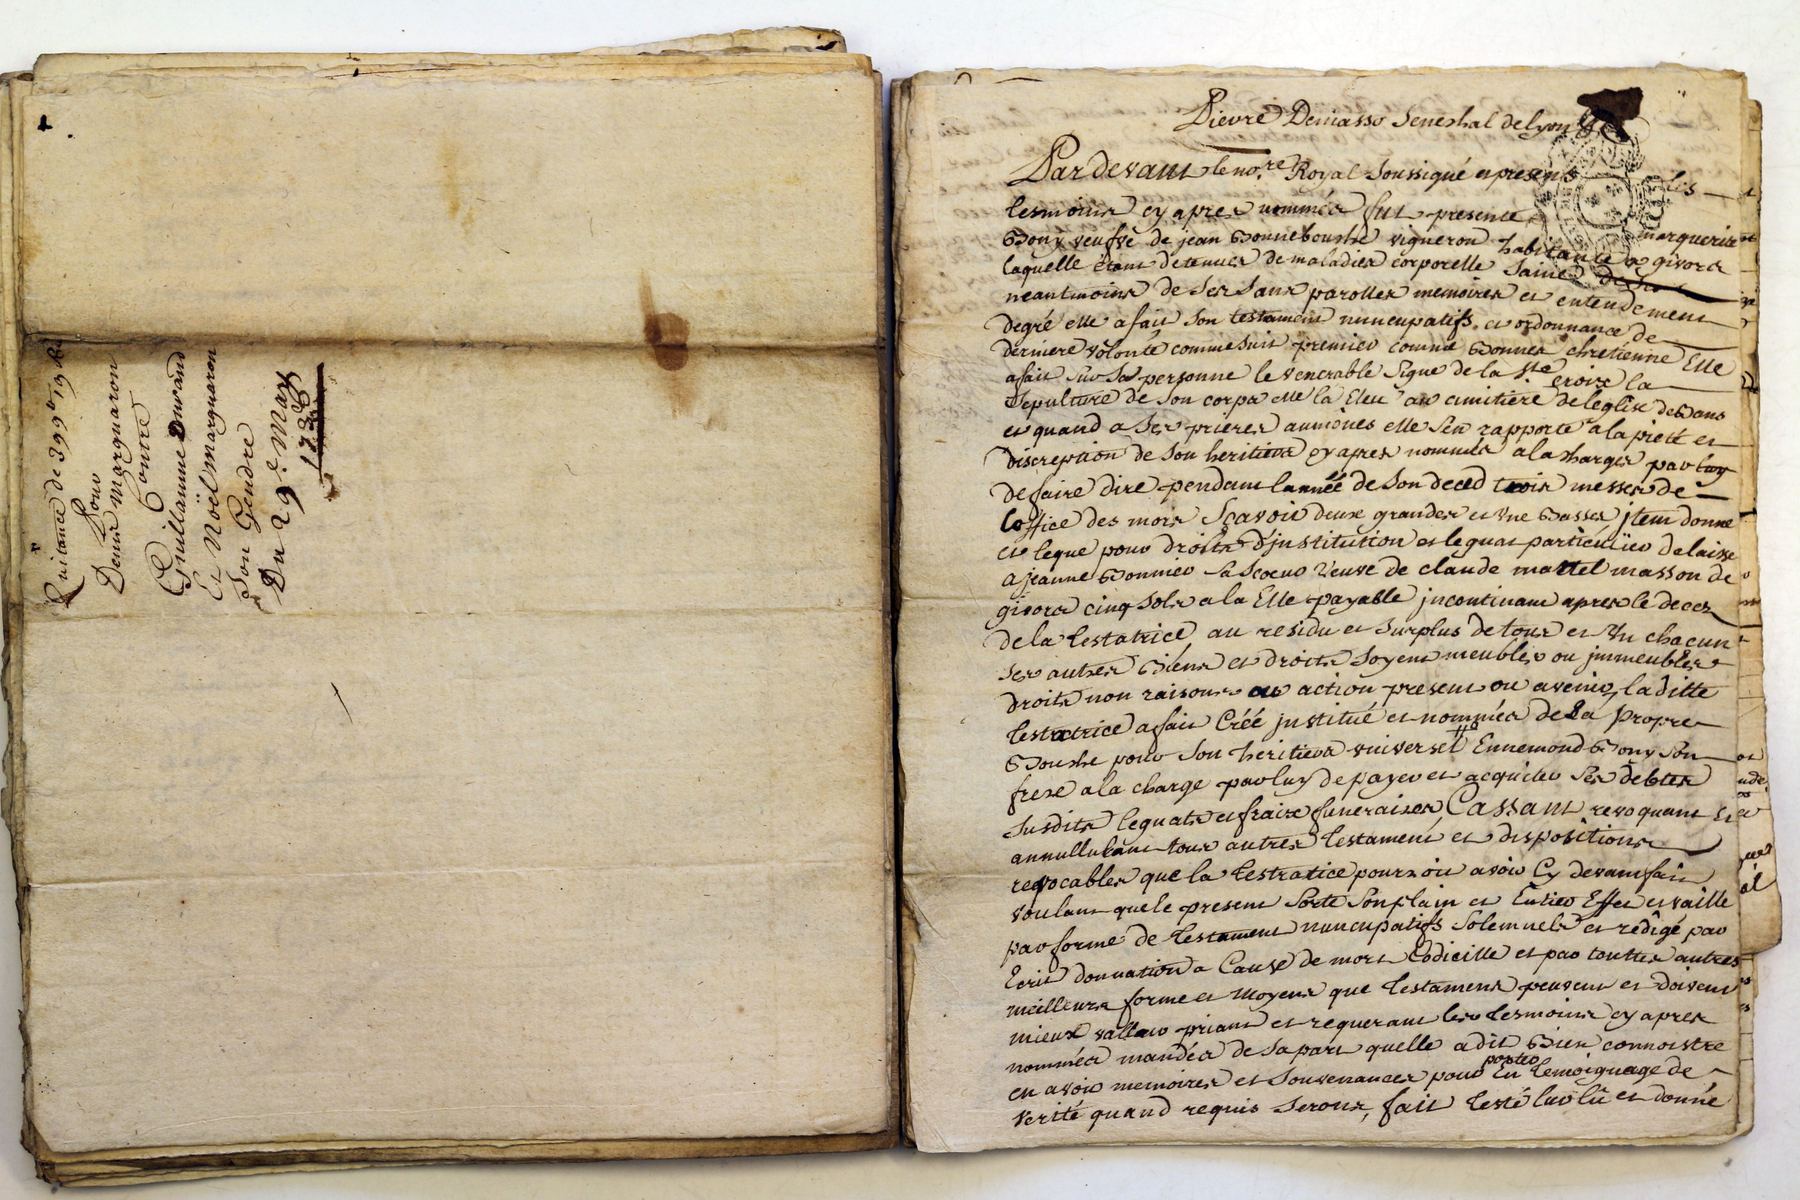 Quitance de 399# 19s 6d
Pour
Denis Marguaron
Contre
Guillaume Durand
Et Noël marguaron
Son Gendre
Du 29e. Mars
1738
Pievre Demasso Seneshal de lyon
Pardevant le no.re Royal Soussigné et présens les
tesmoins cy apres nommés fut presente marguerite
Bony veufve de jean Bonnebouche vigneron habitante a givors
laquelle étant détenues de maladies corporelle Saine
neantmoins de Ses Sans parolles memoires et entendement de
degré elle a fait Son testament nuncupatifs et ordonnance de
derniere volonté comme Suit premier comme Bonnes chretienne Elle
a fait Sur Sa personne le venerable Signe de la Ste croix la
Sepulture de Son corps elle la Eleu au cimitiere de leglise de Bans
et quand a Ses prieres aumônes elle S'en rapporte a la pieté et
discreption de Son heritiers cy apres nommés a la charges par luy
de faire dire pendant lannéé de Son deced trois messes de
Loffice des mors Scavoir deux grandes et Une Basses jtem donne
et legue pour droits d'justitution et leguat particulier delaisse
a jeanne Bonnier Sa Scoeur veuve de claude martel masson de
givors cinq Sols a la Elle payable jncontinant apres le deces
de la testatrice, au residu et Surplus de tous et Un chacun
Ses autres Biens et droits Soyent meubles ou jmmeubles
droits non raisons ou action present ou avenir, la ditte
testatrice a fait Créé justitué et nommés de Sa propre
Boushe pour Son heritiers universel Ennemond Bony Son
frere a la charge par luy de payer et acquiter Ses debtes
Susdits leguats et fraire funeraires Cassant revoquant Et
annullant tous autres testament et dispositions
revocables que la testratice pourroit avoir Cy devant fait
voulant que le present Sorte Son plain et Entier Effet et vaille
par forme de testament nuncupatifs Solemnels et rédigé par
Ecrit donnation a Cause de mort Codicille et par touttes autres
meilleurs forme et Moyens que testamens peuvent et doivent
mieux valloir priant et requerant les tesmoins cy apres
nommés mandés de Sa part quelle a dit Bien connoistre
en avoir memoires et Souvenances pour En porter temoignage de
verité quand requis Seront, fait testé lu et donné